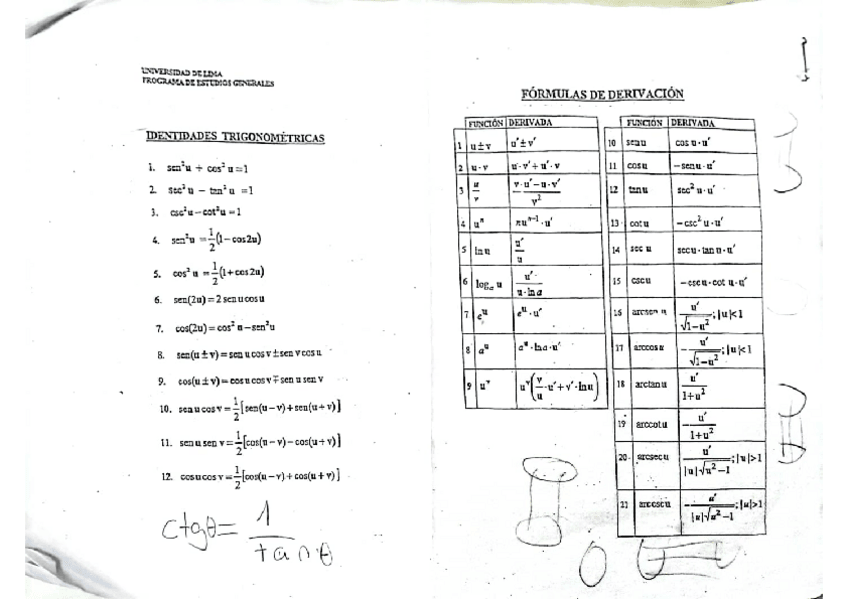 UNIVERSIDAD DE LIMA
PROGRAMA DE ESTUDIOS GENERALES
IDENTIDADES TRIGONOMÉTRICAS
1. sen²u + cos²u = 1
2. sec²u − tan²u = 1
3. csc²u − cot²u = 1
4. sen²u = 1/2(1 − cos2u)
5. cos²u = 1/2(1 + cos2u)
6. sen(2u) = 2 sen u cos u
7. cos(2u) = cos²u − sen²u
8. sen(u ± v) = sen u cos v ± sen v cos u
9. cos(u ± v) = cos u cos v ∓ sen u sen v
10. sen u cos v = 1/2[sen(u − v) + sen(u + v)]
11. sen u sen v = 1/2[cos(u − v) − cos(u + v)]
12. cos u cos v = 1/2[cos(u − v) + cos(u + v)]
ctgθ = 1/tanθ
FÓRMULAS DE DERIVACIÓN
FUNCIÓN DERIVADA
1 u ± v u′ ± v′
2 u · v u · v′ + u′ · v
3 u/v (v · u′ − u · v′)/v²
4 uⁿ nuⁿ⁻¹ · u′
5 ln u u′/u
6 logₐ u u′/(u · ln a)
7 e^u e^u · u′
8 a^u a^u · ln a · u′
9 u^v u^v(v/u · u′ + v′ · ln u)
FUNCIÓN DERIVADA
10 sen u cos u · u′
11 cos u −sen u · u′
12 tan u sec² u · u′
13 cot u −csc² u · u′
14 sec u sec u · tan u · u′
15 csc u −csc u · cot u · u′
16 arcsen u u′/√(1−u²); |u|<1
17 arccos u −u′/√(1−u²); |u|<1
18 arctan u u′/(1+u²)
19 arccot u −u′/(1+u²)
20 arcsec u u′/(|u|√(u²−1)); |u|>1
21 arccsc u −u′/(|u|√(u²−1)); |u|>1